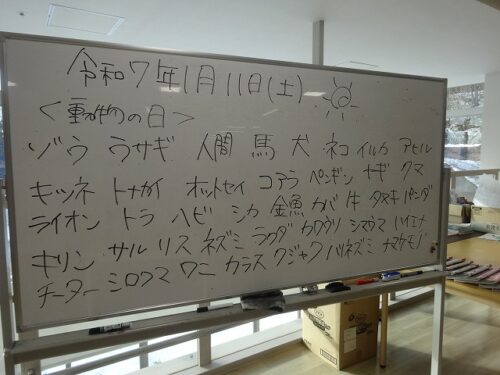 令和7年1月11日(土)
<動物の日>
ゾウ ウサギ 人間 馬 犬 ネコ イルカ アヒル
キツネ トナカイ オットセイ コアラ ペンギン ヤギ クマ
ライオン トラ ヘビ シカ 金魚 カバ 牛 タヌキ パンダ
キリン サル リス ネズミ ラクダ カワウソ シマウマ ハイエナ
チーター シロクマ ワニ カラス クジャク ハリネズミ ナマケモノ